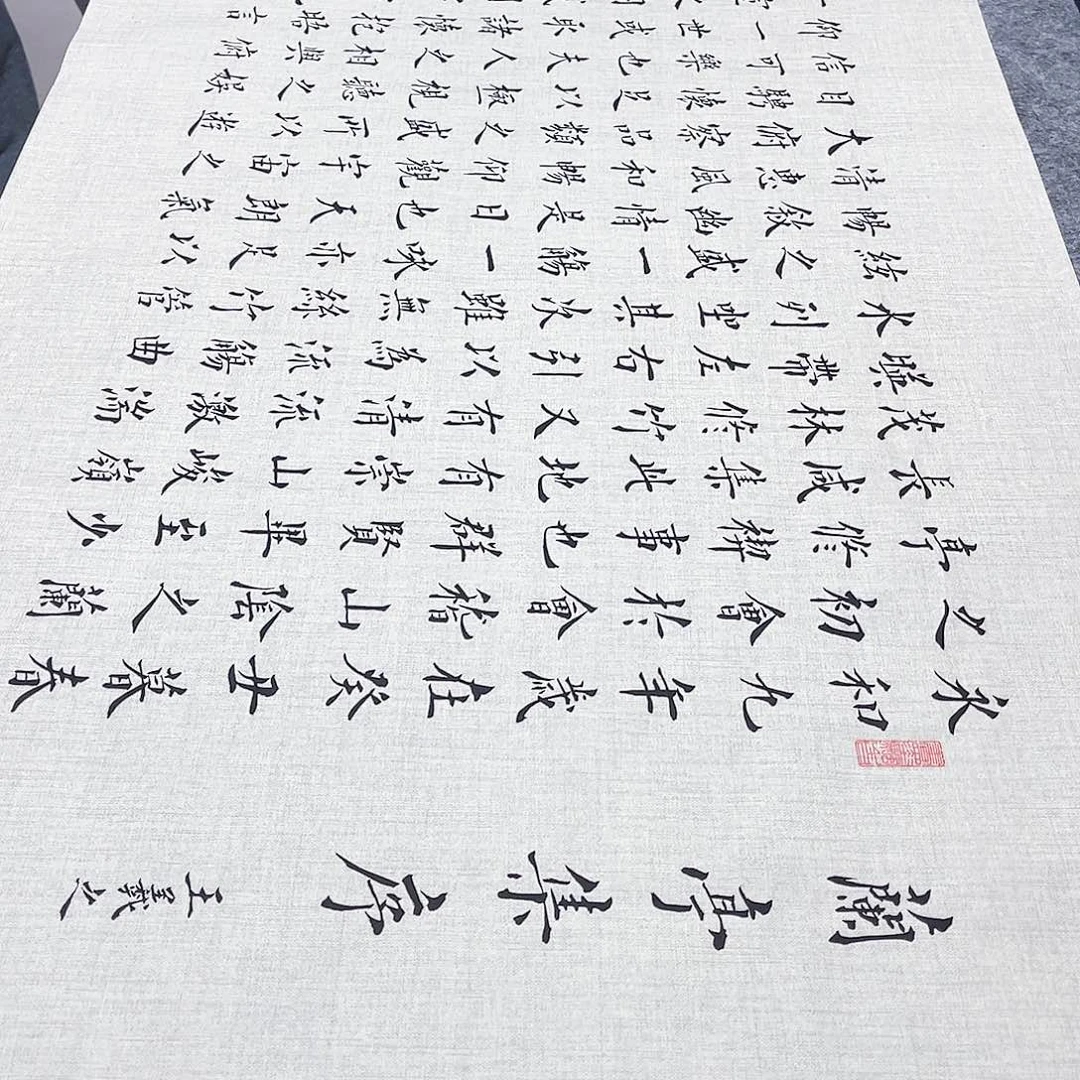 蘭亭集序 王羲之
永和九年歲在癸丑暮春
之初會於會稽山陰之蘭
亭修禊事也群賢畢至少
長咸集此地有崇山峻嶺
茂林修竹又有清流激湍
暎帶左右引以為流觴曲
水列坐其次雖無絲竹管
絃之盛一觴一咏亦足以
暢敘幽情是日也天朗氣
清惠風和暢仰觀宇宙之
大俯察品類之盛所以遊
目騁懷足以極視聽之娛
信可樂也夫人之相與俯
仰一世或取諸懷抱晤言